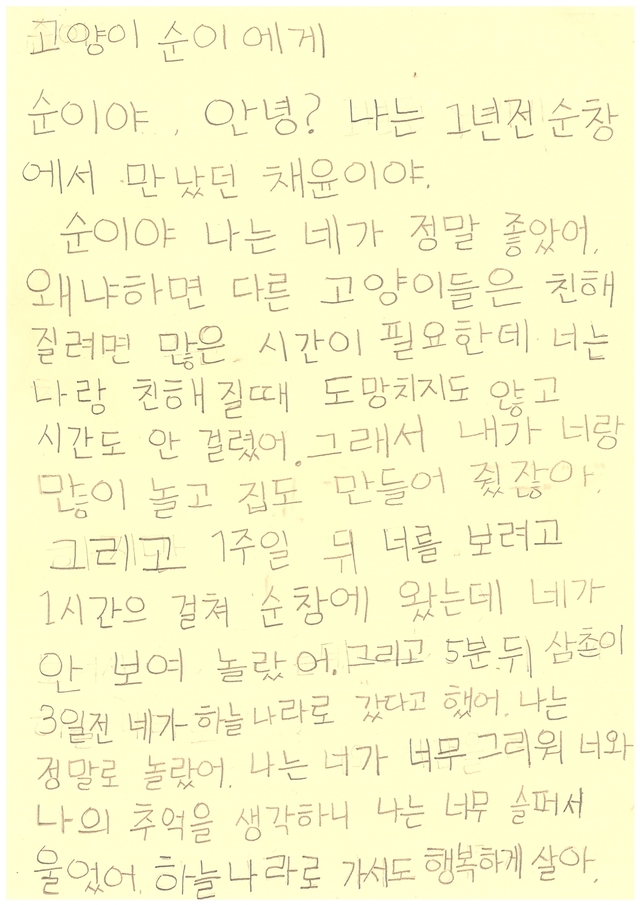 고양이 순이에게
순이야. 안녕? 나는 1년전 순창
에서 만났던 채윤이야.
순이야 나는 네가 정말 좋았어.
왜냐하면 다른 고양이들은 친해
질려면 많은 시간이 필요한데 너는
나랑 친해질때 도망치지도 않고
시간도 안 걸렸어. 그래서 내가 너랑
많이 놀고 집도 만들어 줬잖아.
그리고 1주일 뒤 너를 보려고
1시간으 걸쳐 순창에 왔는데 네가
안 보여 놀랐어. 그리고 5분 뒤 삼촌이
3일전 네가 하늘나라로 갔다고 했어. 나는
정말로 놀랐어. 나는 너가 너무 그리워 너와
나의 추억을 생각하니 나는 너무 슬퍼서
울었어. 하늘나라로 가서도 행복하게 살아.